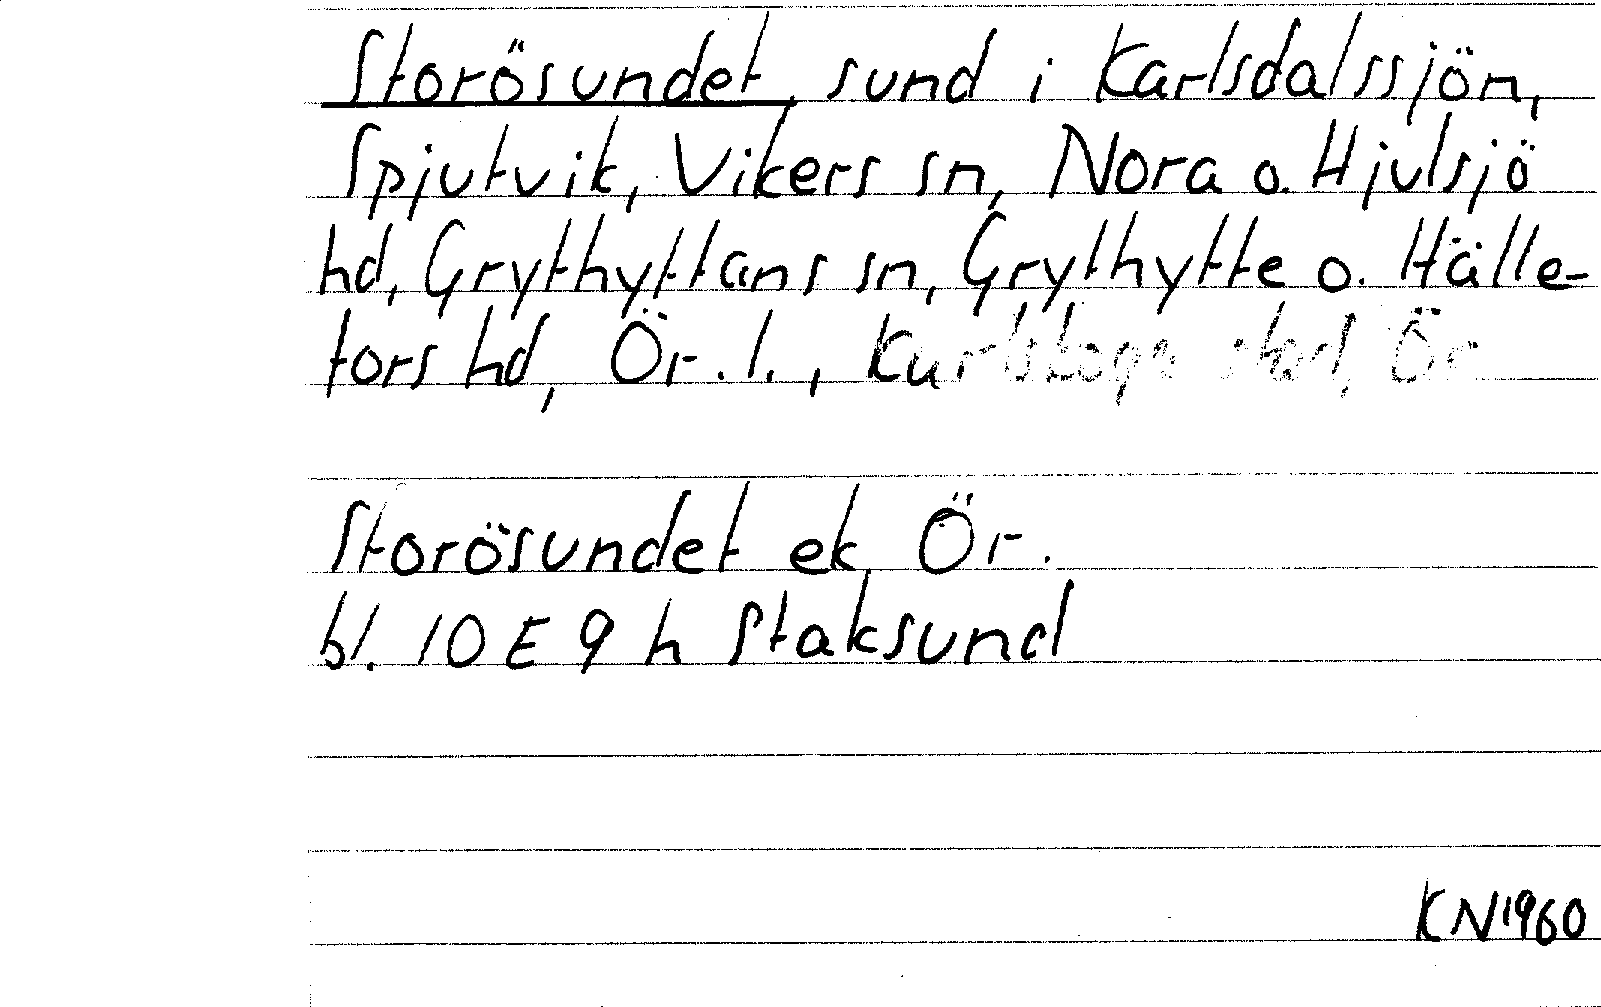 Storösundet, sund i Karlsdalssjön,
Spjutvik, Vikers sn, Nora o. Hjulsjö
hd, Grythyttans sn, Grythytte o. Hälle-
fors hd, Ör. l., Karlskoga stad, Ör
Storösundet ek, Ör.
bl. 10 E 9 h Staksund
KN 1960